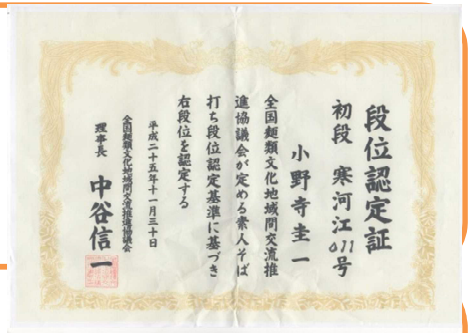 段位認定証
初段　寒河江011号
小野寺圭一
全国麺類文化地域間交流推
進協議会が定める素人そば
打ち段位認定基準に基づき
右段位を認定する
平成二十五年十一月三十日
全国麺類文化地域間交流推進協議会
理事長　中谷信一